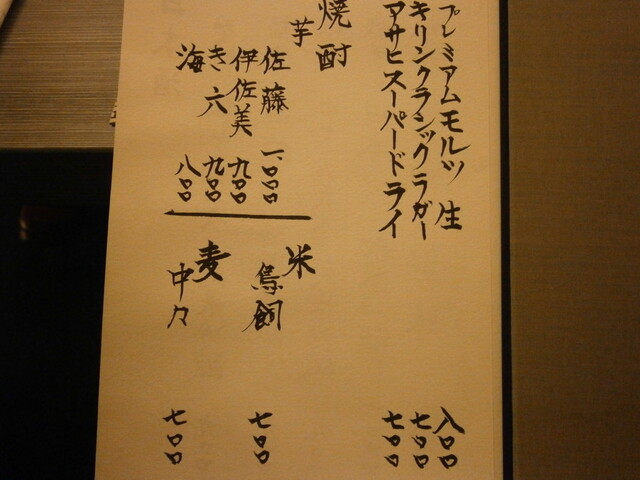 プレミアムモルツ 生 八〇〇
キリンクラシックラガー 七〇〇
アサヒスーパードライ 七〇〇
焼酎
芋
佐藤 一、〇〇〇
伊佐美 九〇〇
き六 九〇〇
海 八〇〇
米
鳥飼 七〇〇
麦
中々 七〇〇